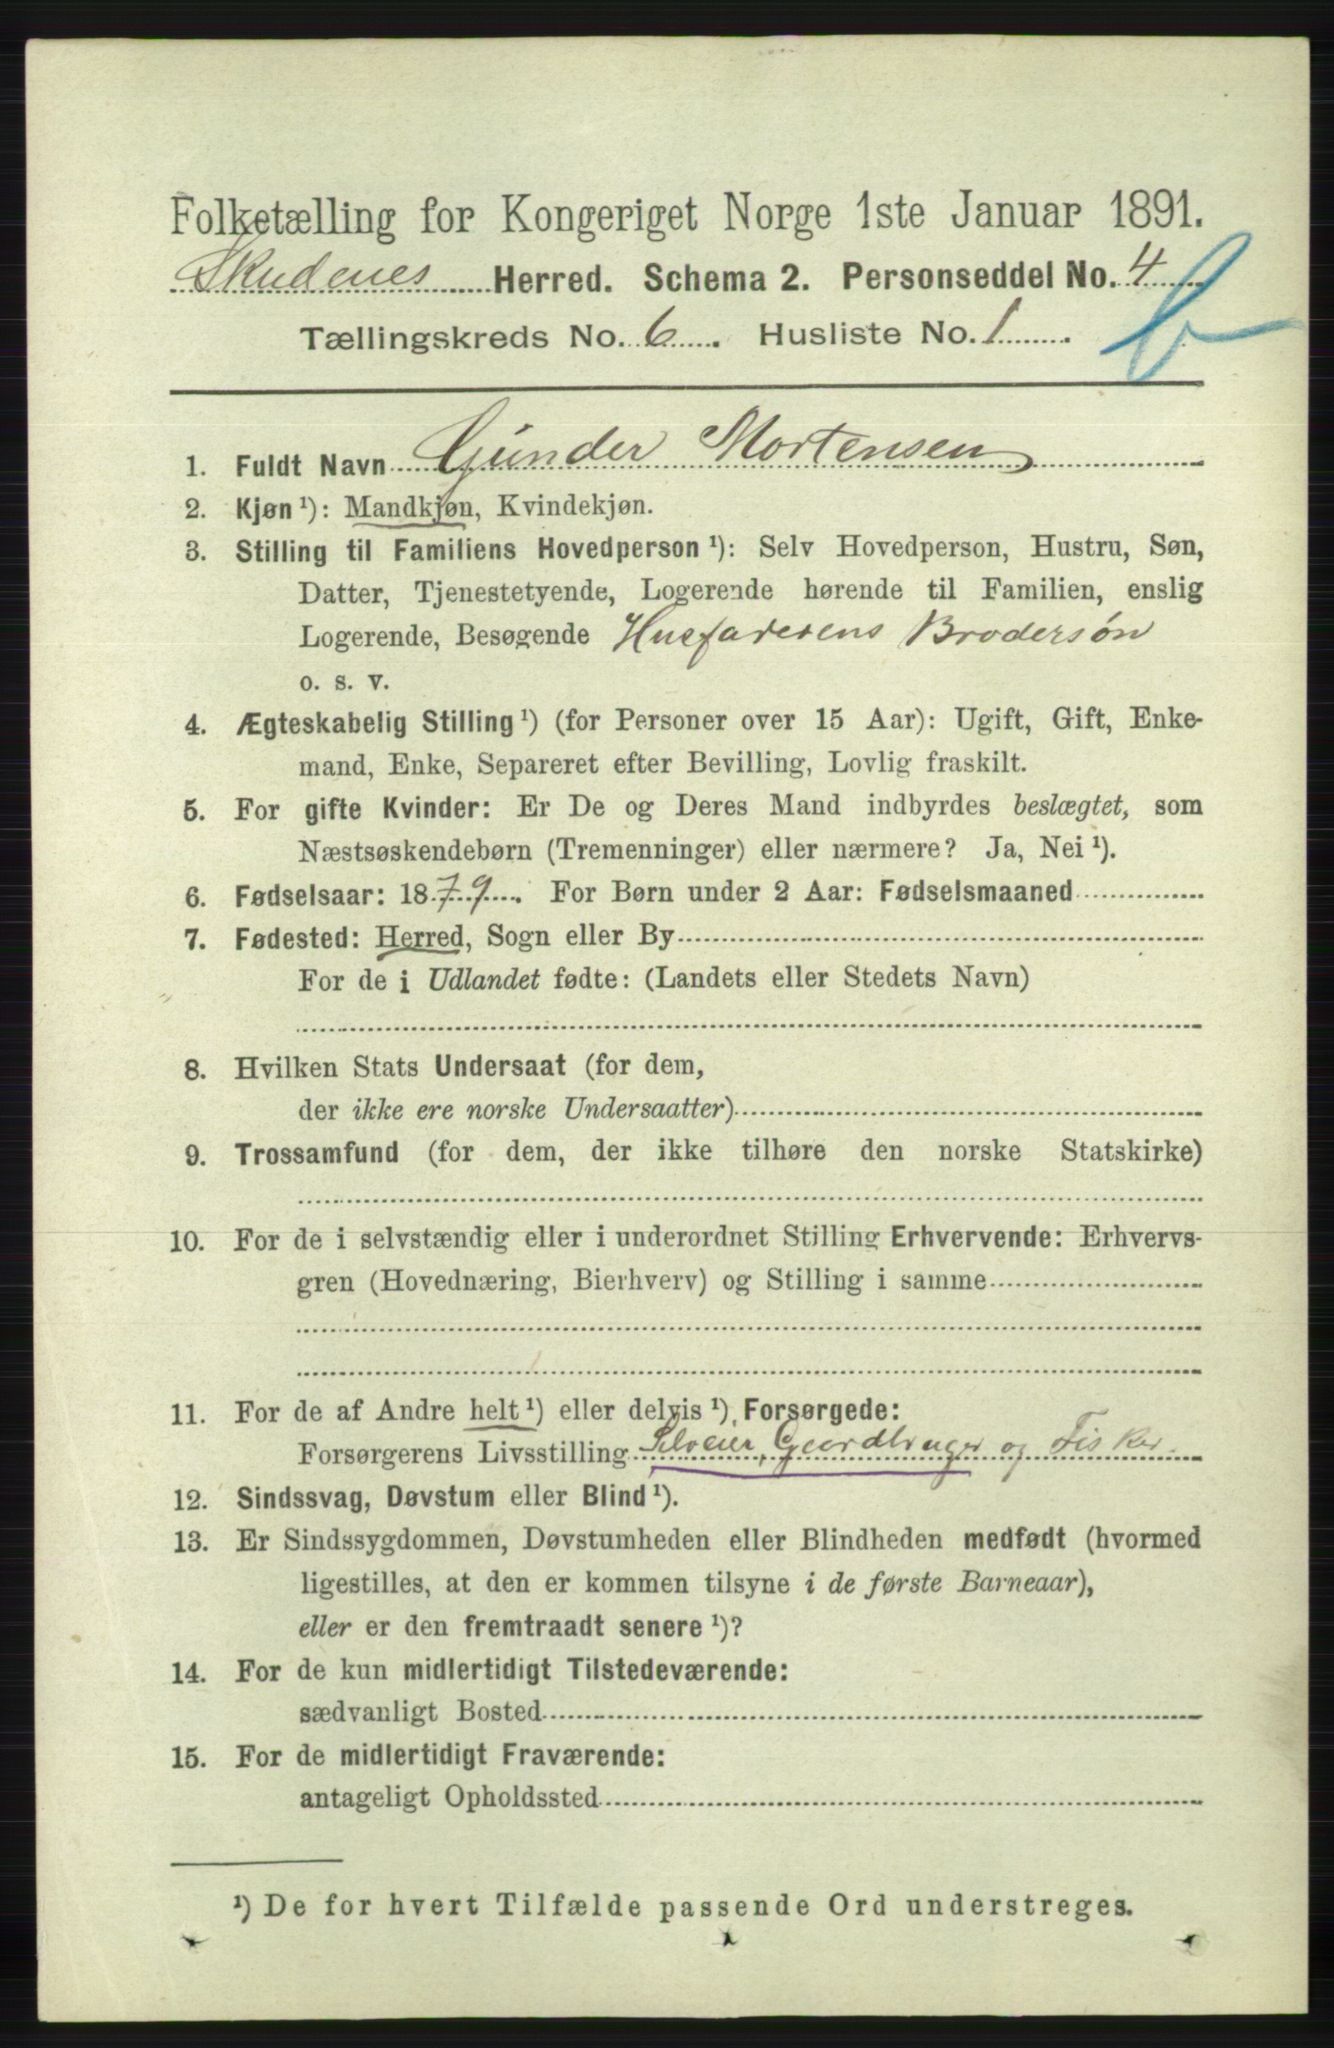 Folketælling for Kongeriget Norge 1ste Januar 1891.
Skudenes Herred. Schema 2. Personseddel No. 4
Tællingskreds No. 6. Husliste No. 1.
b
1. Fuldt Navn Gunder Mortensen
2. Kjøn ¹): Mandkjøn, Kvindekjøn.
3. Stilling til Familiens Hovedperson ¹): Selv Hovedperson, Hustru, Søn,
Datter, Tjenestetyende, Logerende hørende til Familien, enslig
Logerende, Besøgende Husfaderens Brodersøn
o. s. v.
4. Ægteskabelig Stilling ¹) (for Personer over 15 Aar): Ugift, Gift, Enke-
mand, Enke, Separeret efter Bevilling, Lovlig fraskilt.
5. For gifte Kvinder: Er De og Deres Mand indbyrdes beslægtet, som
Næstsøskendebørn (Tremenninger) eller nærmere? Ja, Nei ¹).
6. Fødselsaar: 1879. For Børn under 2 Aar: Fødselsmaaned
7. Fødested: Herred, Sogn eller By
For de i Udlandet fødte: (Landets eller Stedets Navn)
8. Hvilken Stats Undersaat (for dem,
der ikke ere norske Undersaatter)
9. Trossamfund (for dem, der ikke tilhøre den norske Statskirke)
10. For de i selvstændig eller i underordnet Stilling Erhvervende: Erhvervs-
gren (Hovednæring, Bierhverv) og Stilling i samme
11. For de af Andre helt ¹) eller delvis ¹) Forsørgede:
Forsørgerens Livsstilling Selveier, Gaardbruger og Fisker.
12. Sindssvag, Døvstum eller Blind ¹).
13. Er Sindssygdommen, Døvstumheden eller Blindheden medfødt (hvormed
ligestilles, at den er kommen tilsyne i de første Barneaar),
eller er den fremtraadt senere ¹)?
14. For de kun midlertidigt Tilstedeværende:
sædvanligt Bosted
15. For de midlertidigt Fraværende:
antageligt Opholdssted
¹) De for hvert Tilfælde passende Ord understreges.